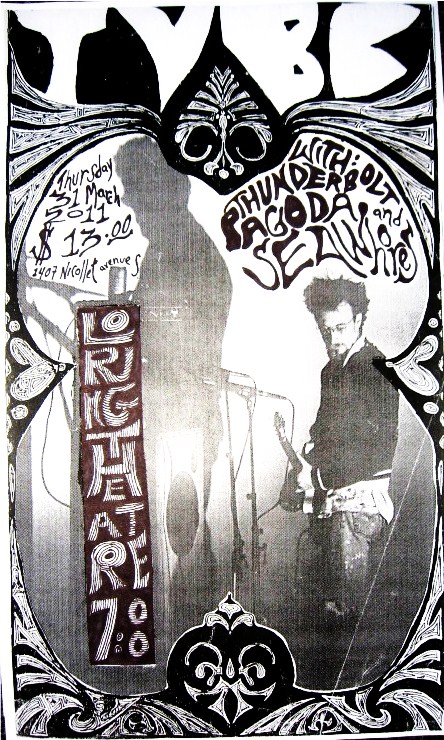 TVBE
Thursday
31 March
2011
$ 13:00
1407 Nicollet avenue S
WITH:
THUNDERBOLT
PAGODA and
SEAWhores
LO
RIG
THE
AT
RE
7:00